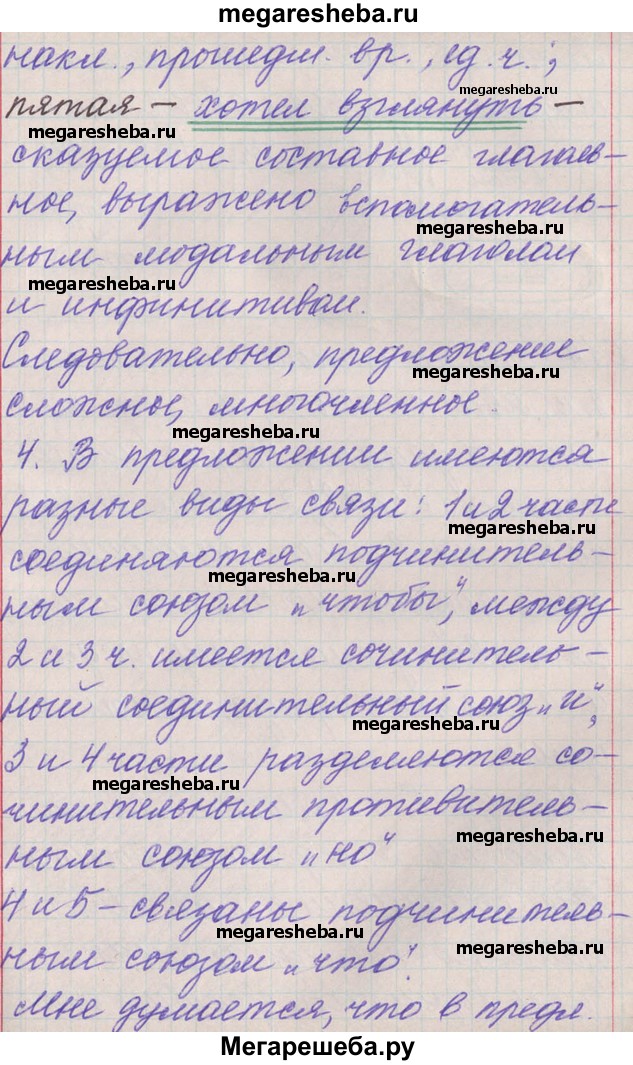 megaresheba.ru
накл., прошедш. вр., ед. ч.;
пятая – хотел взглянуть –
megaresheba.ru
megaresheba.ru
сказуемое составное глаголь-
ное, выражено вспомогатель-
megaresheba.ru
ным модальным глаголом
megaresheba.ru
и инфинитивом.
Следовательно, предложение
megaresheba.ru
сложное, многочленное.
megaresheba.ru
4. В предложении имеются
разные виды связи: 1 и 2 части
megaresheba.ru
соединяются подчинитель-
megaresheba.ru
ным союзом „чтобы“, между
2 и 3 ч. имеется сочинитель-
ный соединительный союз „и“,
megaresheba.ru
3 и 4 части разделяются со-
megaresheba.ru
чинительным противитель-
megaresheba.ru
ным союзом „но“
4 и 5 – связаны подчинитель-
megaresheba.ru
megaresheba.ru
ным союзом „что“.
Мне думается, что в предл.
Мегарешеба.ру